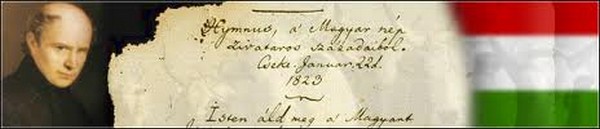 Hymnus, a' Magyar nép
zivataros századaiból.
Cseke. Januar. 22d.
1823
Isten áld meg a' Magyart